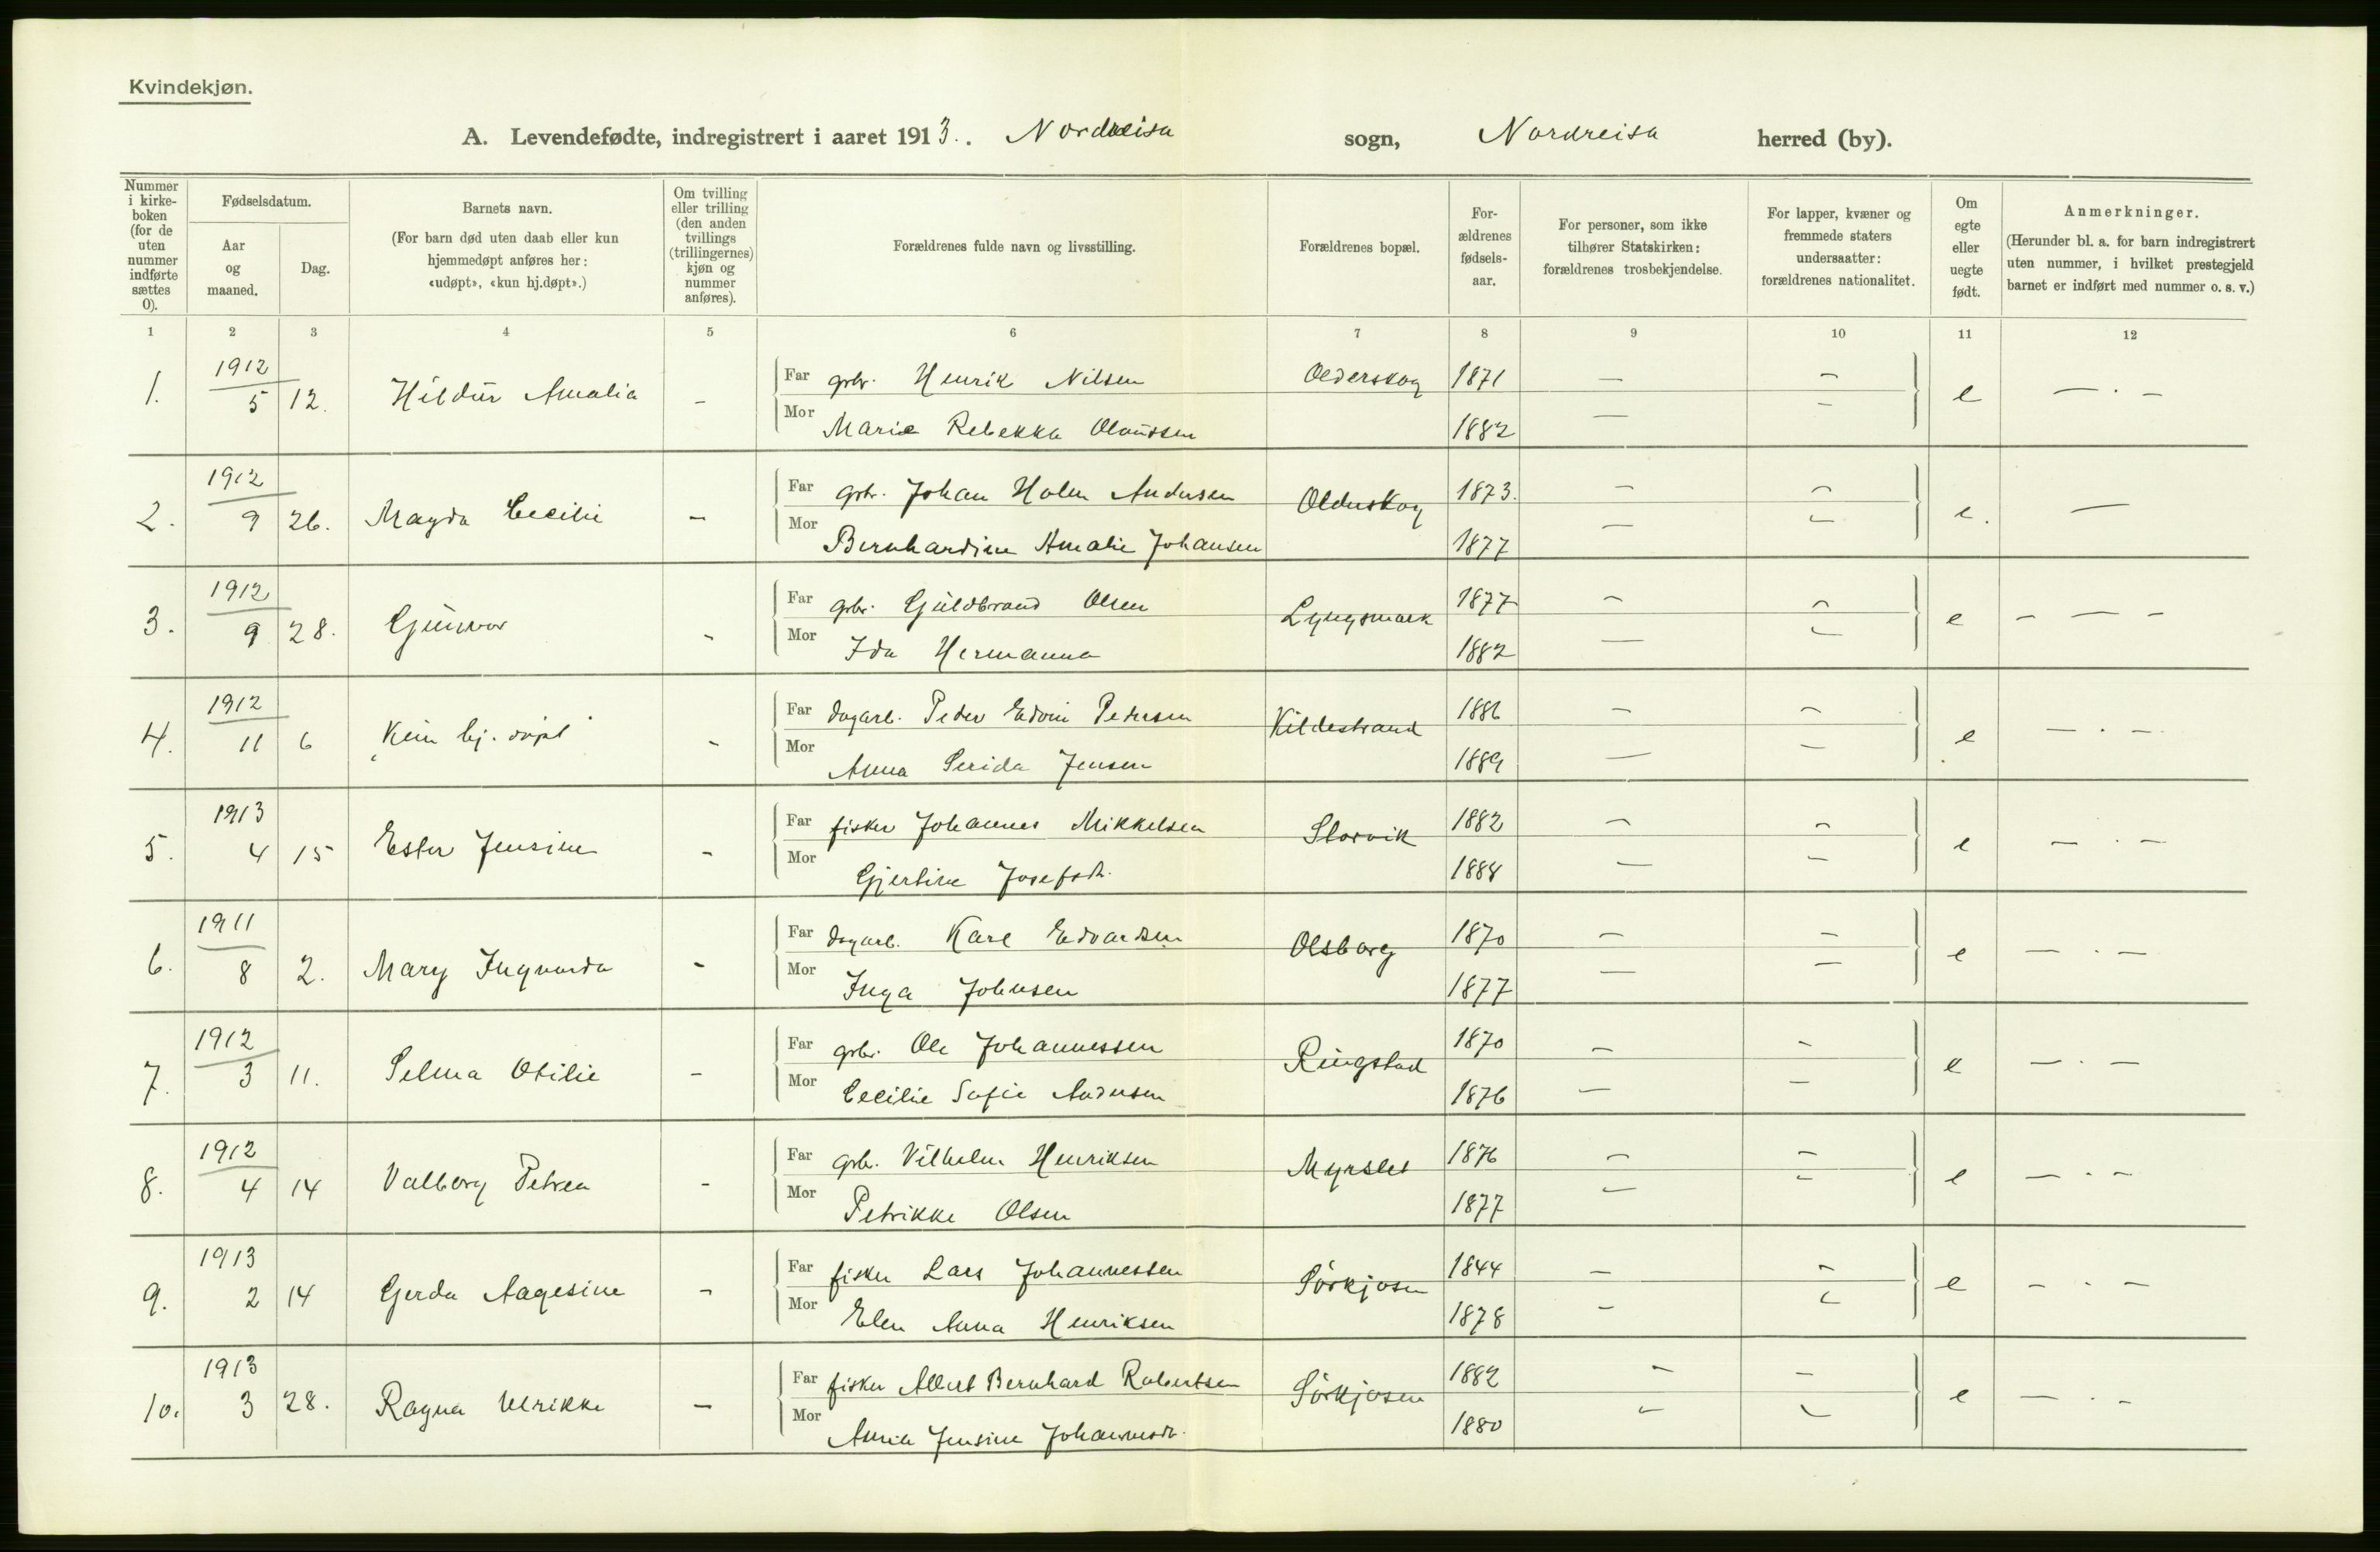 Kvindekjøn.
A. Levendefødte, indregistrert i aaret 1913. Nordreisa sogn, Nordreisa herred (by).
Nummer i kirke-boken (for de uten nummer indførte sættes 0).
Fødselsdatum.
Aar og maaned.
Dag.
Barnets navn.
(For barn død uten daab eller kun hjemmedøpt anføres her: «udøpt», «kun hj.døpt».)
Om tvilling eller trilling (den anden tvillings (trillingernes) kjøn og nummer anføres).
Forældrenes fulde navn og livsstilling.
Forældrenes bopæl.
For-ældrenes fødsels-aar.
For personer, som ikke tilhører Statskirken: forældrenes trosbekjendelse.
For lapper, kvæner og fremmede staters undersaatter: forældrenes nationalitet.
Om egte eller uegte født.
Anmerkninger.
(Herunder bl. a. for barn indregistrert uten nummer, i hvilket prestegjeld barnet er indført med nummer o. s. v.)
1 2 3 4 5 6 7 8 9 10 11 12
1. 1912 5 12. Hildur Amalia - Far gbr. Henrik Nilsen Olderskog 1871 — — e — . —
Mor Marie Rebekka Olaussen 1882 — —
2. 1912 9 26. Magda Cecilie — Far gbr. Johan Holm Andersen Olderskog 1873. — — e. —
Mor Bernhardine Amalie Johansen 1877 — —
3. 1912 9 28. Gunvor - Far gbr. Guldbrand Olsen Lyngsmark 1877 — — e — — —
Mor Ida Hermanna 1882 — —
4. 1912 11 6 Kun hj. døpt - Far dagarb. Peder Edvin Pedersen Kildestrand 1886 — — e — . —
Mor Anna Serida Jensen 1889 — —
5. 1913 4 15 Ester Jensine - Far fisker Johannes Mikkelsen Storvik 1882 — — e — . —
Mor Gjertine Josefsdt. 1888 — —
6. 1911 8 2. Mary Ingvarda - Far dagarb. Karl Edvardsen Olsborg 1870 — — e — . —
Mor Inga Johnsen 1877 — —
7. 1912 3 11. Selma Otilie - Far gbr. Ole Johannessen Ringstad 1870 — — e — . —
Mor Cecilie Sofie Andersen 1876 — —
8. 1912 4 14 Valborg Petrea - Far gbr. Vilhelm Henriksen Myrslet 1876 — — e — . —
Mor Petrikke Olsen 1877 — —
9. 1913 2 14 Gerda Aagesine - Far fisker Lars Johannessen Sørkjosen 1844 — — e — . —
Mor Elen Anna Henriksen 1878 — —
10. 1913 3 28. Ragna Ulrikke — Far fisker Albert Bernhard Robertsen Sørkjosen 1882 — — e — . —
Mor Jensine Johannesdt. 1880 — —